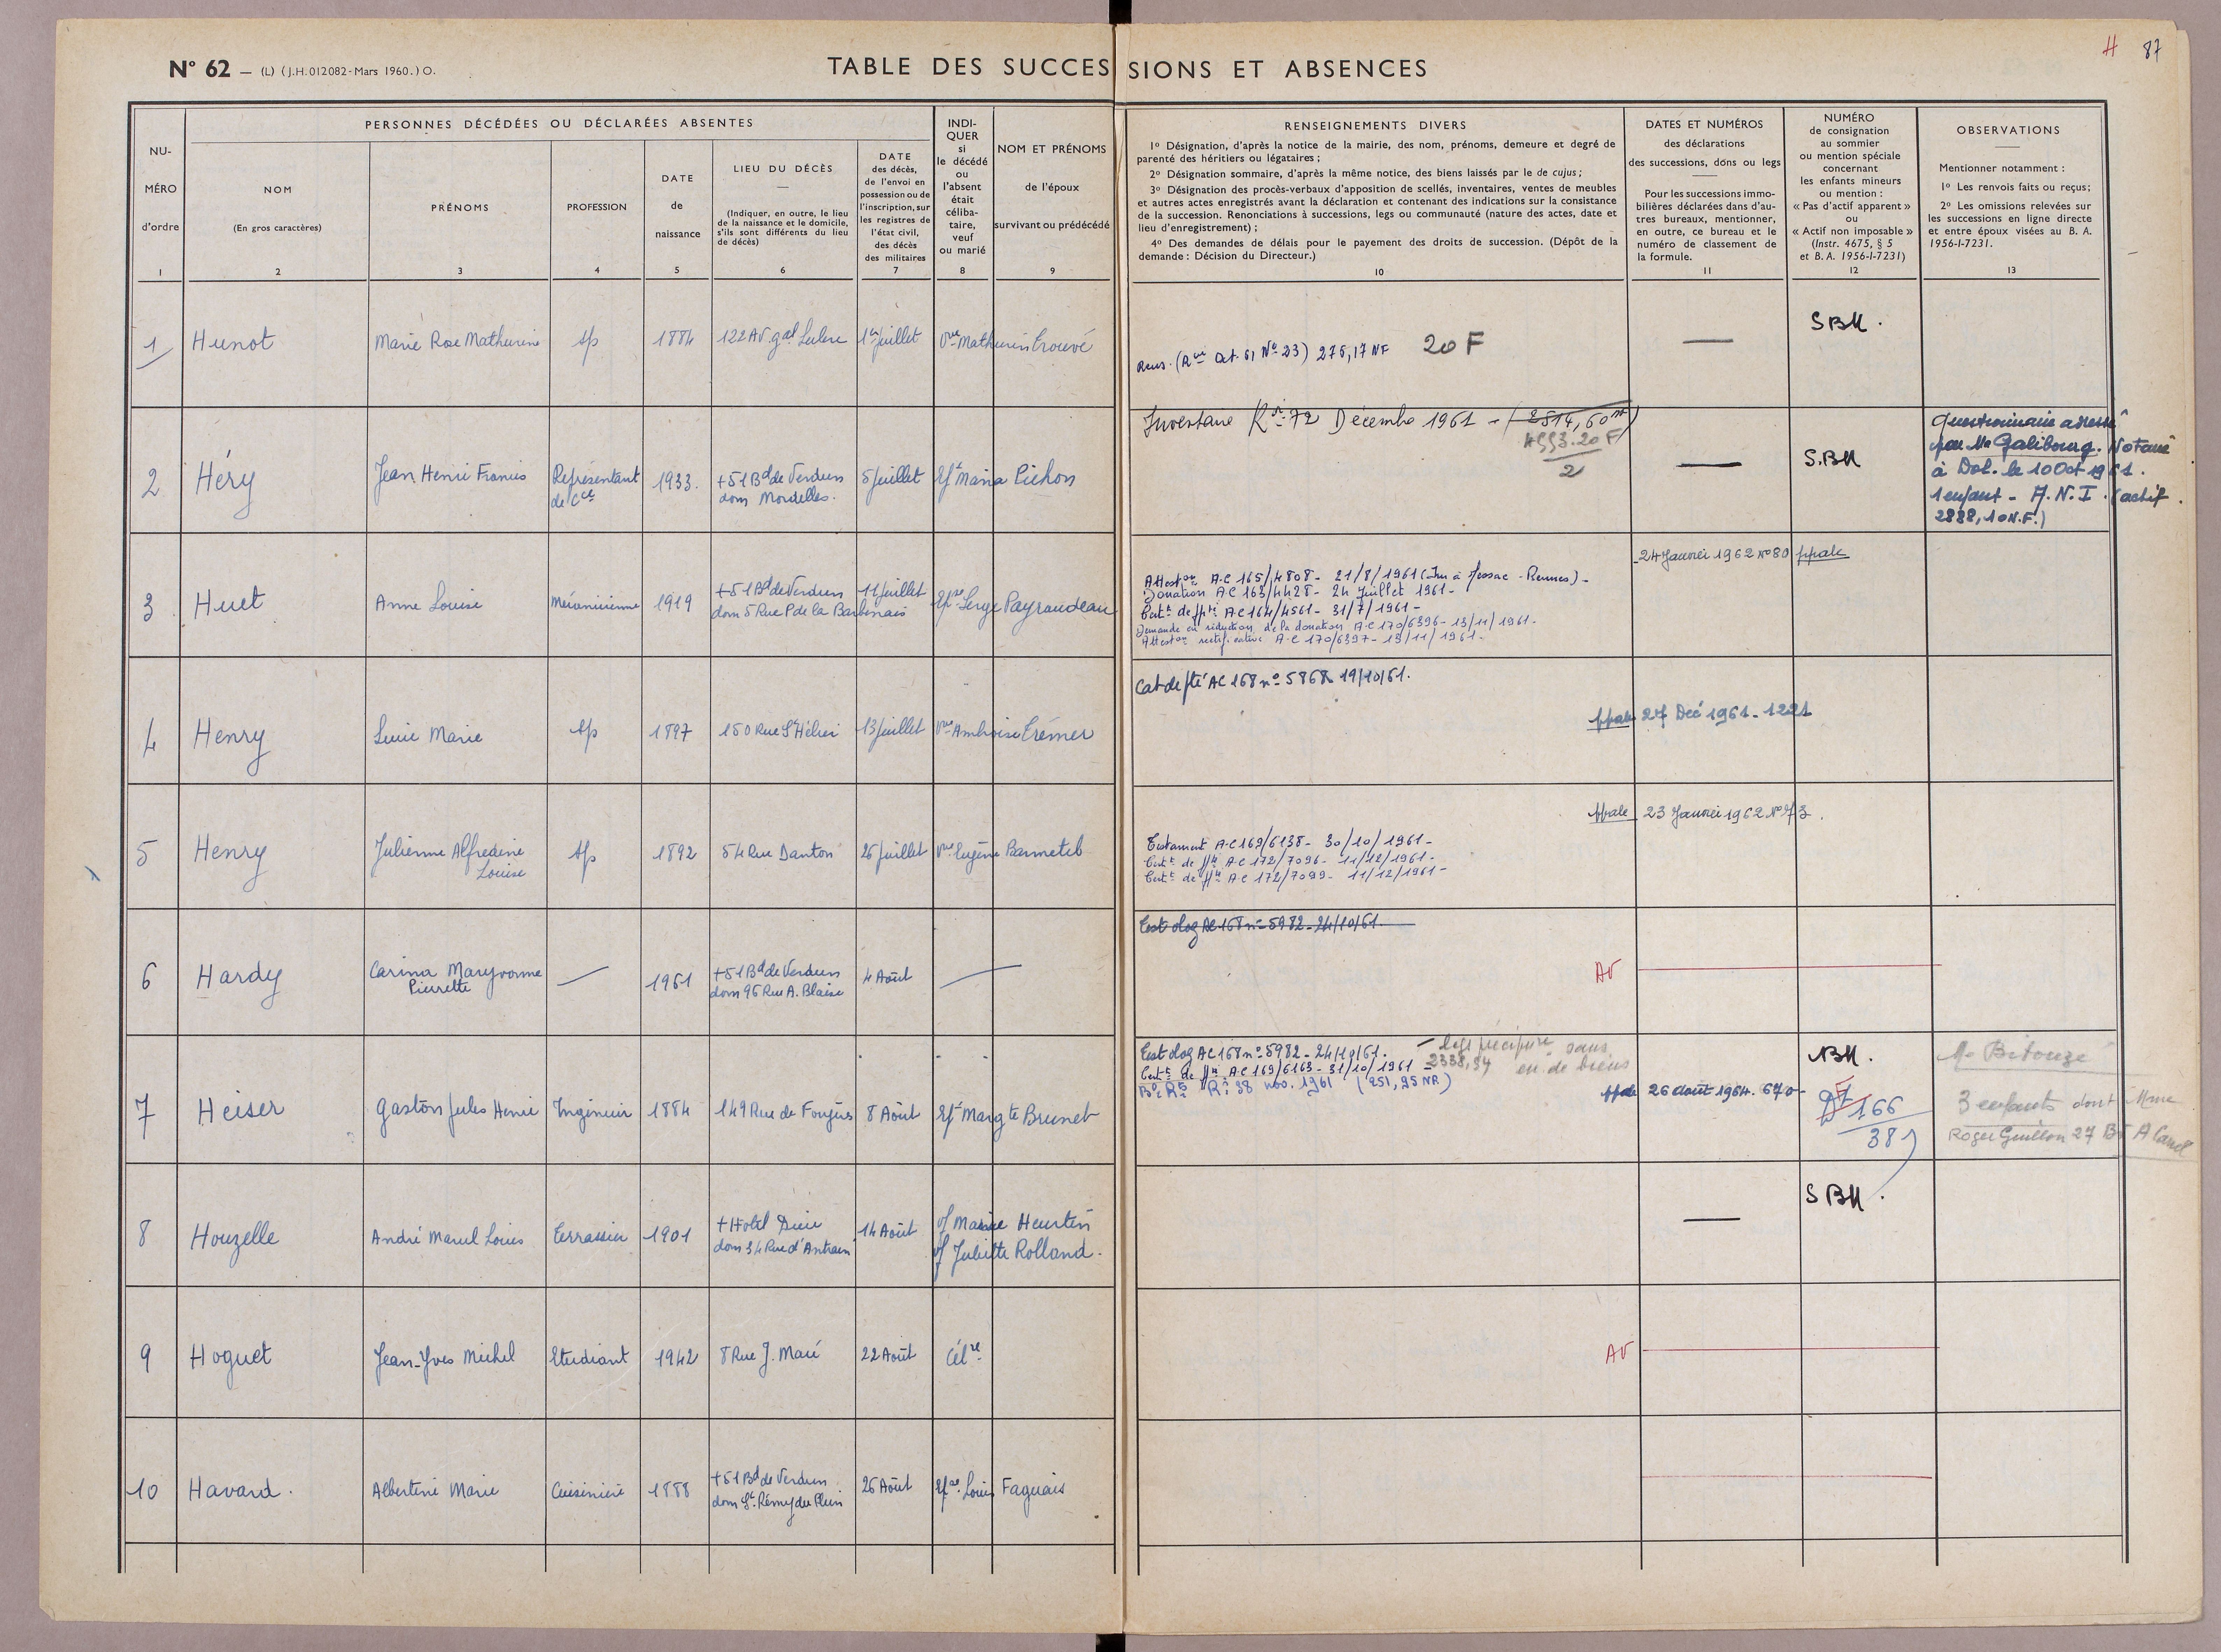 N° 62 — (L) (J.H. 012082-Mars 1960.) O.
TABLE DES SUCCESSIONS ET ABSENCES
H 87
NU-
MÉRO
d'ordre
1
PERSONNES DÉCÉDÉES OU DÉCLARÉES ABSENTES
NOM
(En gros caractères)
2
PRÉNOMS
3
PROFESSION
4
DATE
de
naissance
5
LIEU DU DÉCÈS
—
(Indiquer, en outre, le lieu
de la naissance et le domicile,
s'ils sont différents du lieu
de décès)
6
DATE
des décès,
de l'envoi en
possession ou de
l'inscription, sur
les registres de
l'état civil,
des décès
des militaires
7
INDI-
QUER
si
le décédé
ou
l'absent
était
céliba-
taire,
veuf
ou marié
8
NOM ET PRÉNOMS
de l'époux
survivant ou prédécédé
9
RENSEIGNEMENTS DIVERS
1° Désignation, d'après la notice de la mairie, des nom, prénoms, demeure et degré de
parenté des héritiers ou légataires ;
2° Désignation sommaire, d'après la même notice, des biens laissés par le de cujus ;
3° Désignation des procès-verbaux d'apposition de scellés, inventaires, ventes de meubles
et autres actes enregistrés avant la déclaration et contenant des indications sur la consistance
de la succession. Renonciations à successions, legs ou communauté (nature des actes, date et
lieu d'enregistrement) ;
4° Des demandes de délais pour le payement des droits de succession. (Dépôt de la
demande : Décision du Directeur.)
10
DATES ET NUMÉROS
des déclarations
des successions, dons ou legs
Pour les successions immo-
bilières déclarées dans d'au-
tres bureaux, mentionner,
en outre, ce bureau et le
numéro de classement de
la formule.
11
NUMÉRO
de consignation
au sommier
ou mention spéciale
concernant
les enfants mineurs
ou mention :
« Pas d'actif apparent »
ou
« Actif non imposable »
(Instr. 4675, § 5
et B. A. 1956-I-7231)
12
OBSERVATIONS
Mentionner notamment :
1° Les renvois faits ou reçus;
2° Les omissions relevées sur
les successions en ligne directe
et entre époux visées au B. A.
1956-I-7231.
13
1 Hunot Marie Rose Mathurine Sp 1884 122 AV. gal Leclerc 1er juillet Vve Mathurin Trouvé
275,17 NF 20 F — SBM.
2 Héry Jean Henri Francis Représentant de Cce 1933. +51 Bd de Verdun dom Mordelles. 5 juillet Ef Maria Pichon
Inventaire R 72 Décembre 1961 - (2514,60 nf)
4993.20 F
2
— S.BM
Questionnaire adressé
par Me Galibourg. Notaire
à Dol. le 10 Oct 1961.
1 enfant - A.N.I. (actif
2888,10 N.F.)
3 Huet Anne Louise Mécanicienne 1919 +51 Bd de Verdun dom 5 Rue P de la Barbinais 11 juillet Epse Serge Payraudeau
Atteston A.C 165/4808 - 21/8/1961
Donation A.C 163/4428 - 24 Juillet 1961 -
Certt de ppté A.C 164/4561 - 31/7/1961 -
Demande en réduction de la donation A.C 170/6396 - 13/11/1961 -
Atteston rectificative A.C 170/6397 - 13/11/1961 -
24 Janvier 1962 n° 80 ppale
4 Henry Lucie Marie Sp 1897 150 Rue St Hélier 13 juillet Vve Ambroise Trémer
Cat de pté AC 168 n° 5868 19/10/61.
ppale 27 Dec 1961 - 1221
5 Henry Julienne Alfredine Louise Sp 1892 54 Rue Danton 26 juillet Vve Eugène Barmetel
Testament A.C 169/6138 - 30/10/1961 -
Certt de ppté A.C 172/7096 - 11/12/1961 -
Certt de ppté A.C 172/7099 - 11/12/1961 -
ppale 23 Janvier 1962 N° 73.
6 Hardy Carina Maryvonne Pierrette — 1961 +51 Bd de Verdun dom 96 Rue A. Blaise 4 Août —
Test olog AC 168 n° 5982 - 24/10/61.
AV
7 Heiser Gaston Jules Henri Ingénieur 1884 149 Rue de Fougères 8 Août Ef Margte Brunet
Test olog AC 168 n° 5982 - 24/10/61.
Certt de ppté A.C 169/6163 - 31/10/1961 -
R° 38 nov. 1961 (251,95 NF)
- legs préciput sans
2338,54 en de biens
ppale 26 août 1964. 670 -
NBM.
166
38
Me Bitouzé
3 enfants dont Mme
Roger Guillon 27 Bd
8 Houzelle André Marcel Louis Terrassier 1901 +Hotel Dieu dom 34 Rue d'Antrain 14 Août vf Marie Heurtin
vf Juliette Rolland.
— S BM.
9 Hoguet Jean-Yves Michel Etudiant 1942 8 Rue J. Macé 22 Août Célre
AV
10 Havard. Albertine Marie Cuisinière 1888 +51 Bd de Verdun dom St. Rémy du Plein 26 Août Epse Louis Faguais